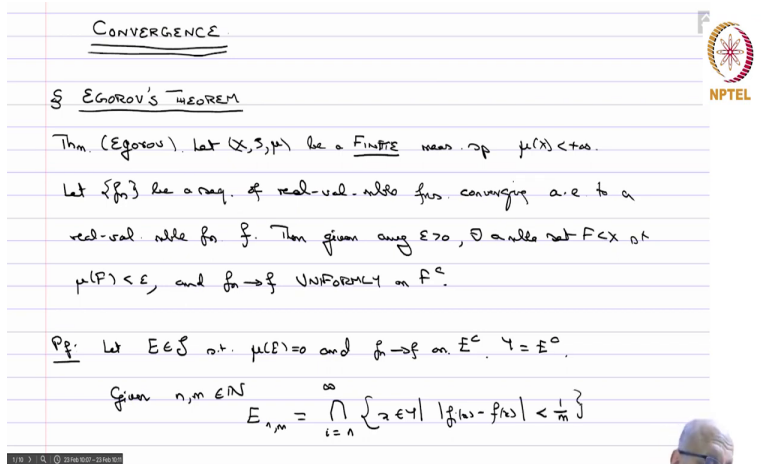 CONVERGENCE
§ EGOROV'S THEOREM
NPTEL
Thm. (Egorov). Let (X, S, μ) be a FINITE meas. sp μ(X) < +∞.
Let {fn} be a seq. of real-val. mble fns. converging a.e to a
real-val. mble fn f. Then given any ε>0, ∃ a mble set F⊂X s.t
μ(F) < ε, and fn → f UNIFORMLY on Fᶜ.
Pf: Let E∈S s.t. μ(E)=0 and fn→f on Eᶜ. Y = Eᶜ.
Given n,m ∈ ℕ
E_{n,m} = ∩_{i=n}^{∞} {x∈Y | |f_i(x) - f(x)| < 1/m}
1/10 23 Feb 10:07 - 23 Feb 10:11